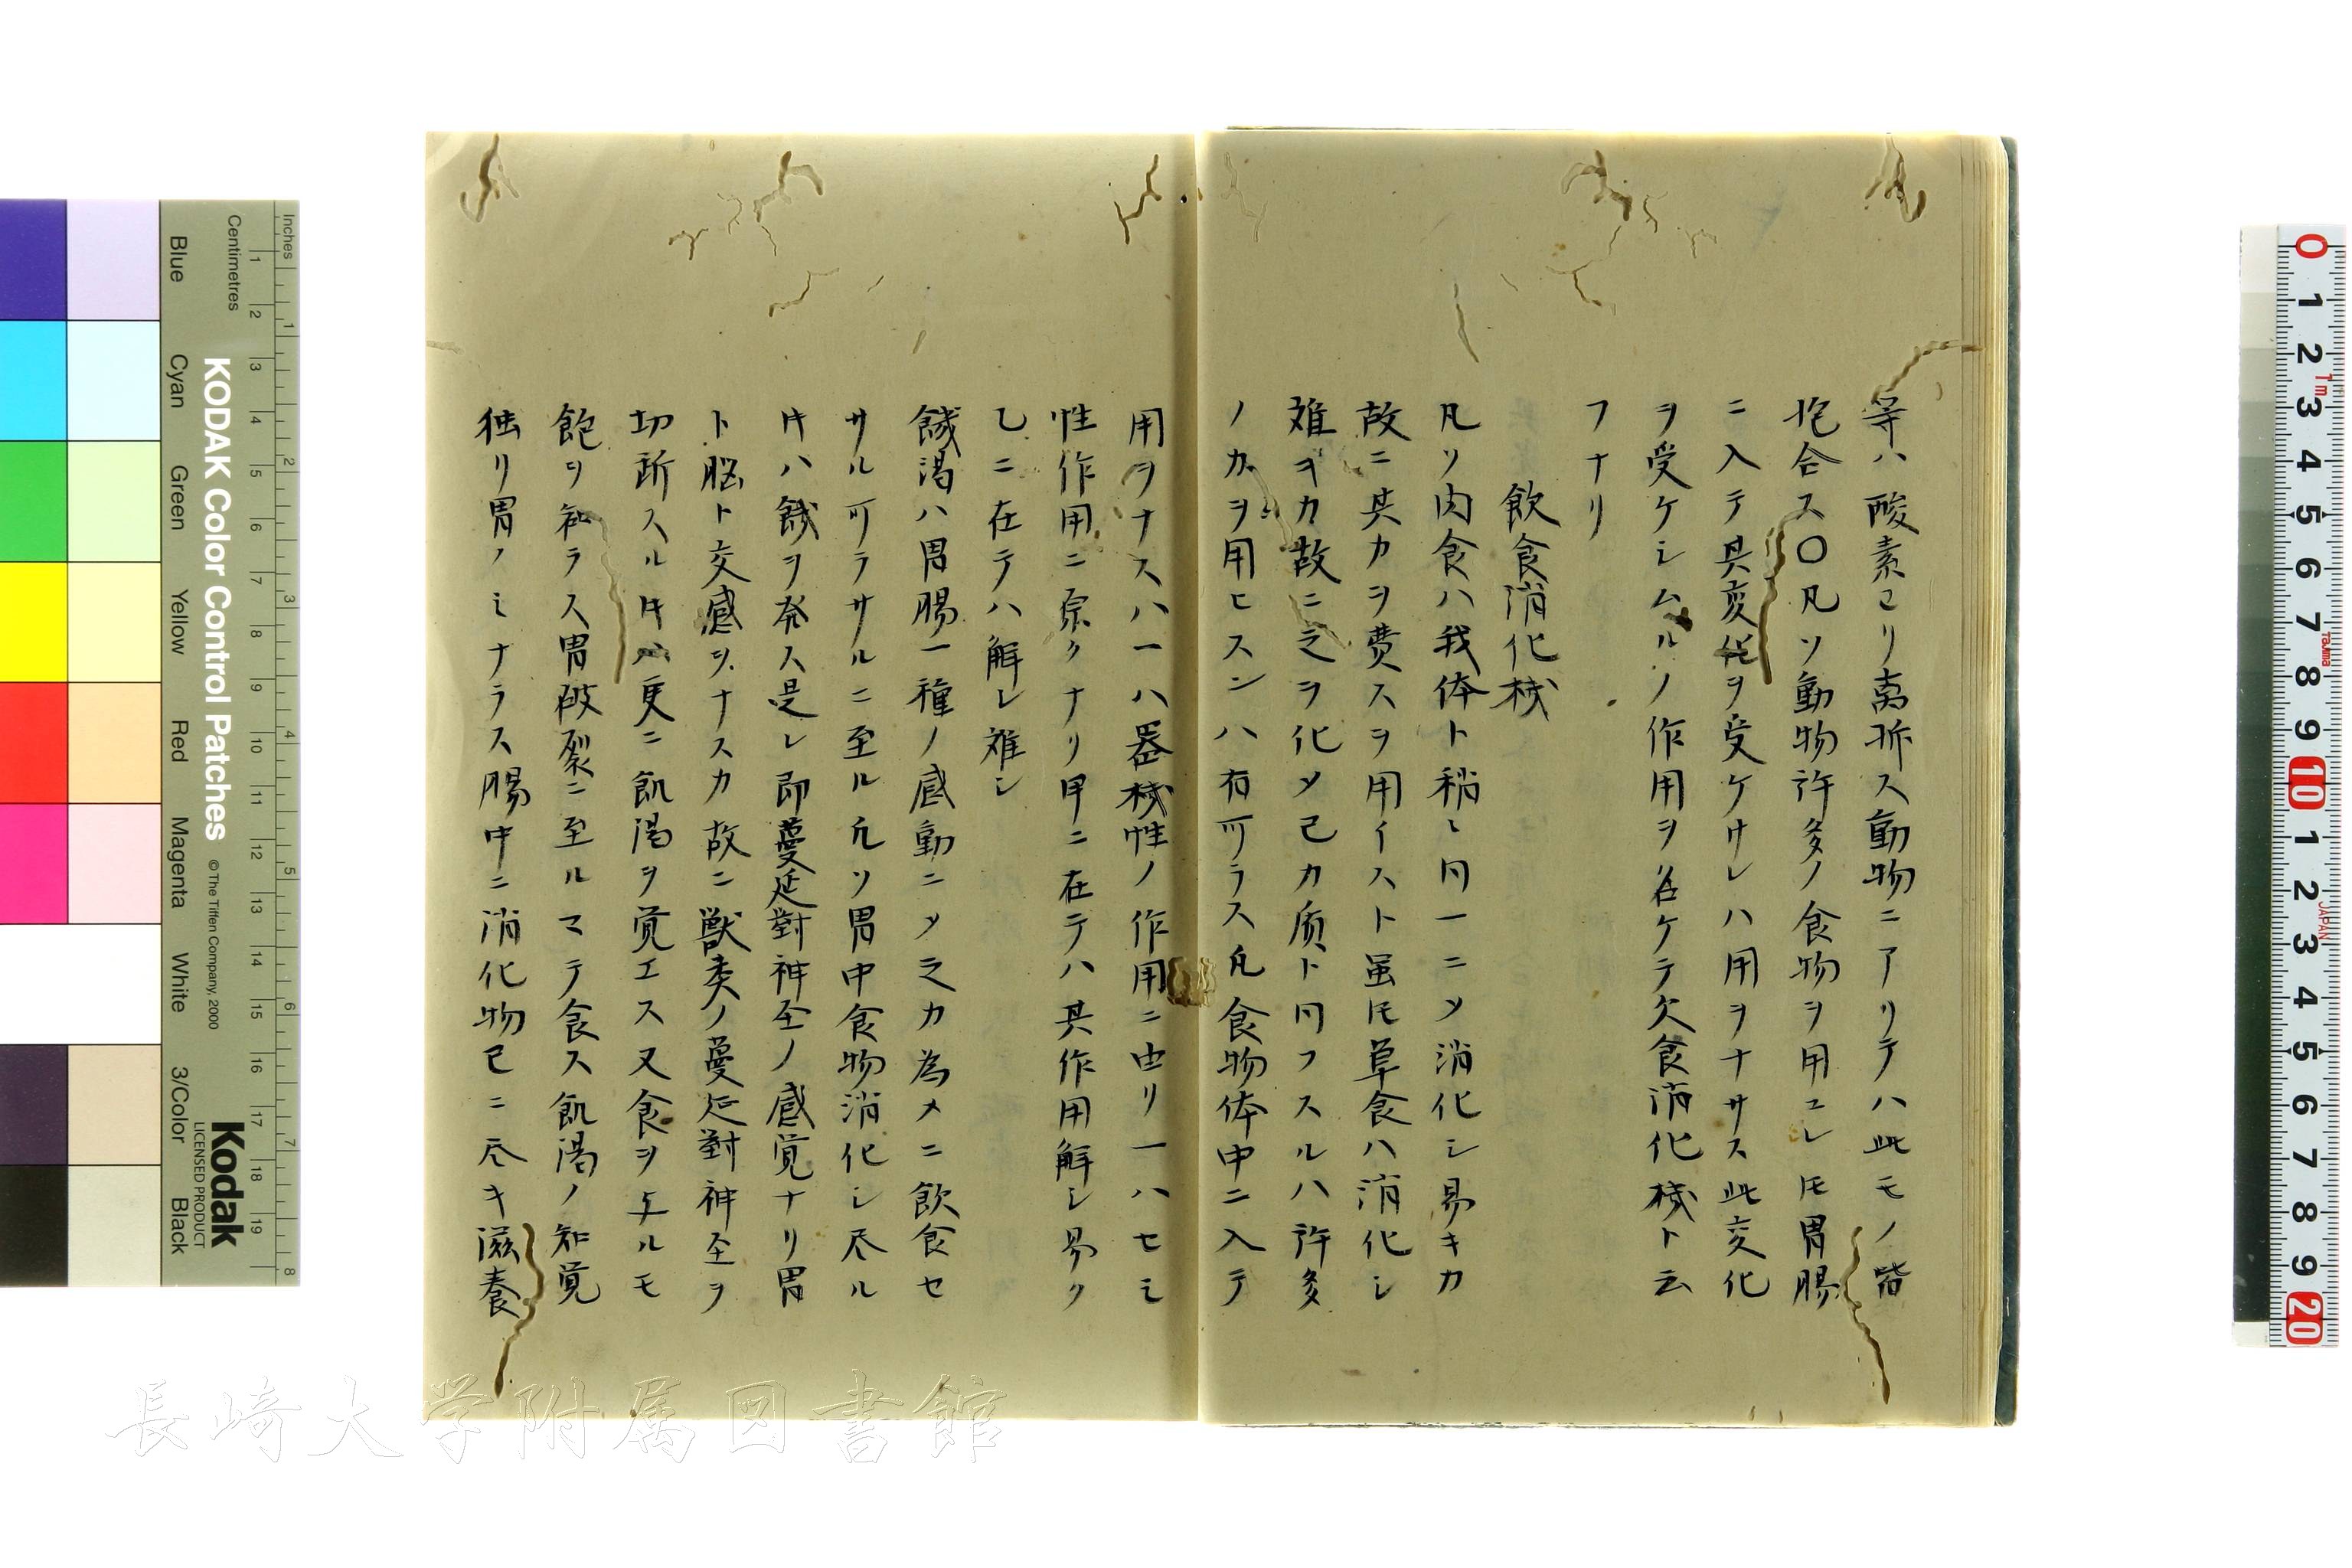 等ハ酸素ヨリ離拆ス動物ニアリテハ此モノ皆
抱合ス〇凡ソ動物許多ノ食物ヲ用ユレ𪜈胃腸
ニ入テ其変化ヲ受ケサレハ用ヲナサス此変化
ヲ受ケシムルノ作用ヲ名ケテ欠食消化機ト云
フナリ
飲食消化機
凡ソ肉食ハ我体ト稍〻同一ニメ消化シ易キカ
故ニ其力ヲ費スヲ用イスト虽𪜈草食ハ消化シ
難キカ故ニ之ヲ化メ己カ质ト同フスルハ許多
ノ力ヲ用ヒスンハ有可ラス凡食物体中ニ入テ
用ヲナスハ一ハ器械性ノ作用ニ由リ一ハセミ
性作用ニ原クナリ甲ニ在テハ其作用解シ易ク
乙ニ在テハ解シ難シ
餓渇ハ胃腸一種ノ感動ニメ之カ為メニ飲食セ
サル可ラサルニ至ル凡ソ胃中食物消化シ尽ル
片ハ餓ヲ発ス是レ即蔓延對神圣ノ感覚ナリ胃
ト脳ト交感ヲナスカ故ニ獣类ノ蔓延對神圣ヲ
切断スル片ハ更ニ飢渇ヲ覚エス又食ヲ与ルモ
飽ヲ知ラス胃破裂ニ至ルマテ食ス飢渇ノ知覚
独リ胃ノミナラス腸中ニ消化物已ニ尽キ滋養
長崎大学附属図書館
KODAK Color Control Patches
© The Tiffen Company, 2000
Kodak
LICENSED PRODUCT
Inches
Centimetres
Blue
Cyan
Green
Yellow
Red
Magenta
White
3/Color
Black
1 2 3 4 5 6 7 8 9 10 11 12 13 14 15 16 17 18 19
1 2 3 4 5 6 7 8
0 1 2 3 4 5 6 7 8 9 10 1 2 3 4 5 6 7 8 9 20
1m
Tajima
JAPAN